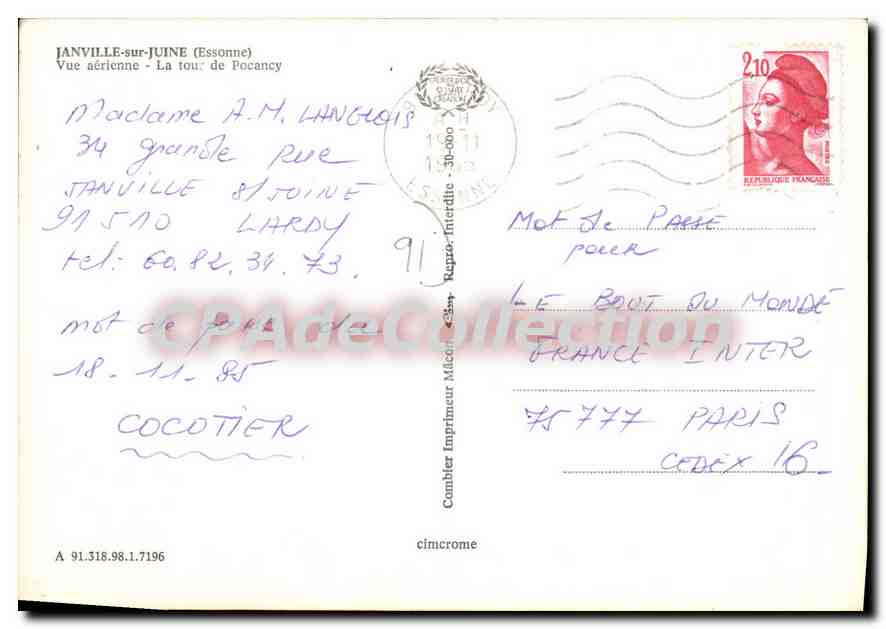 JANVILLE-sur-JUINE (Essonne)
Vue aérienne - La tour de Pocancy
Madame A.M. LANGLOIS
34 grande rue
JANVILLE s/JUINE
91510 LARDY
tel: 60.82.34.73.
mot de passe du
18.11.85
COCOTIER
A 91.318.98.1.7196
91
Combier Imprimeur Mâcon Repro. Interdite - 30-000
cimcrome
19-11
ESSONNE
2,10
REPUBLIQUE FRANÇAISE
Mot de PASSE
pour
LE BOUT DU MONDE
FRANCE INTER
75777 PARIS
CEDEX 16
CPAdeCollection